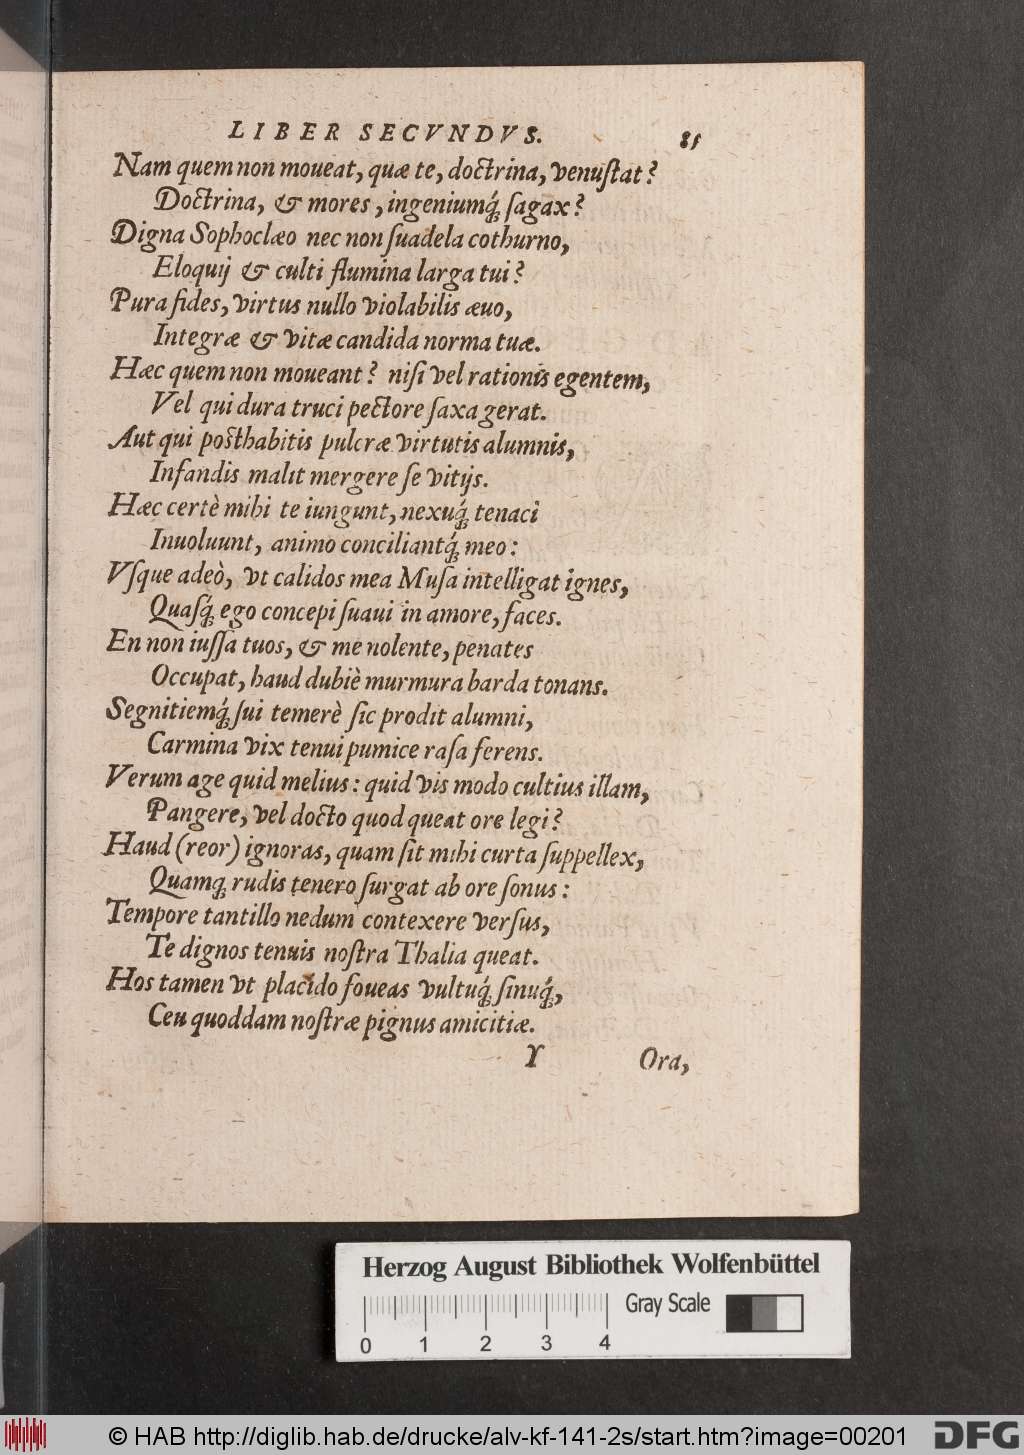 LIBER SECVNDVS. 81
Nam quem non moueat, quæ te, doctrina, venustat?
Doctrina, & mores, ingeniumq́; sagax?
Digna Sophoclæo nec non suadela cothurno,
Eloquij & culti flumina larga tui?
Pura fides, virtus nullo violabilis æuo,
Integræ & vitæ candida norma tuæ.
Hæc quem non moueant? nisi vel rationis egentem,
Vel qui dura truci pectore saxa gerat.
Aut qui posthabitis pulcræ virtutis alumnis,
Infandis malit mergere se vitijs.
Hæc certè mihi te iungunt, nexuq́; tenaci
Inuoluunt, animo conciliantq́; meo:
Vsque adeò, vt calidos mea Musa intelligat ignes,
Quasq́; ego concepi suaui in amore, faces.
En non iussa tuos, & me nolente, penates
Occupat, haud dubiè murmura barda tonans.
Segnitiemq́; sui temerè sic prodit alumni,
Carmina vix tenui pumice rasa ferens.
Verum age quid melius: quid vis modo cultius illam,
Pangere, vel docto quod queat ore legi?
Haud (reor) ignoras, quam sit mihi curta suppellex,
Quamq; rudis tenero surgat ab ore sonus:
Tempore tantillo nedum contexere versus,
Te dignos tenuis nostra Thalia queat.
Hos tamen vt placido foueas vultuq́; sinuq́;,
Ceu quoddam nostræ pignus amicitiæ.
Y Ora,
Herzog August Bibliothek Wolfenbüttel
Gray Scale
0 1 2 3 4
© HAB http://diglib.hab.de/drucke/alv-kf-141-2s/start.htm?image=00201
DFG